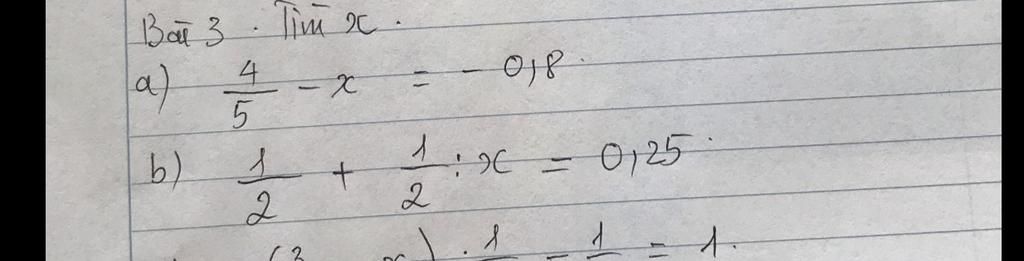 Bài 3. Tìm x.
a) 4/5 - x = - 0,8.
b) 1/2 + 1/2 : x = 0,25.